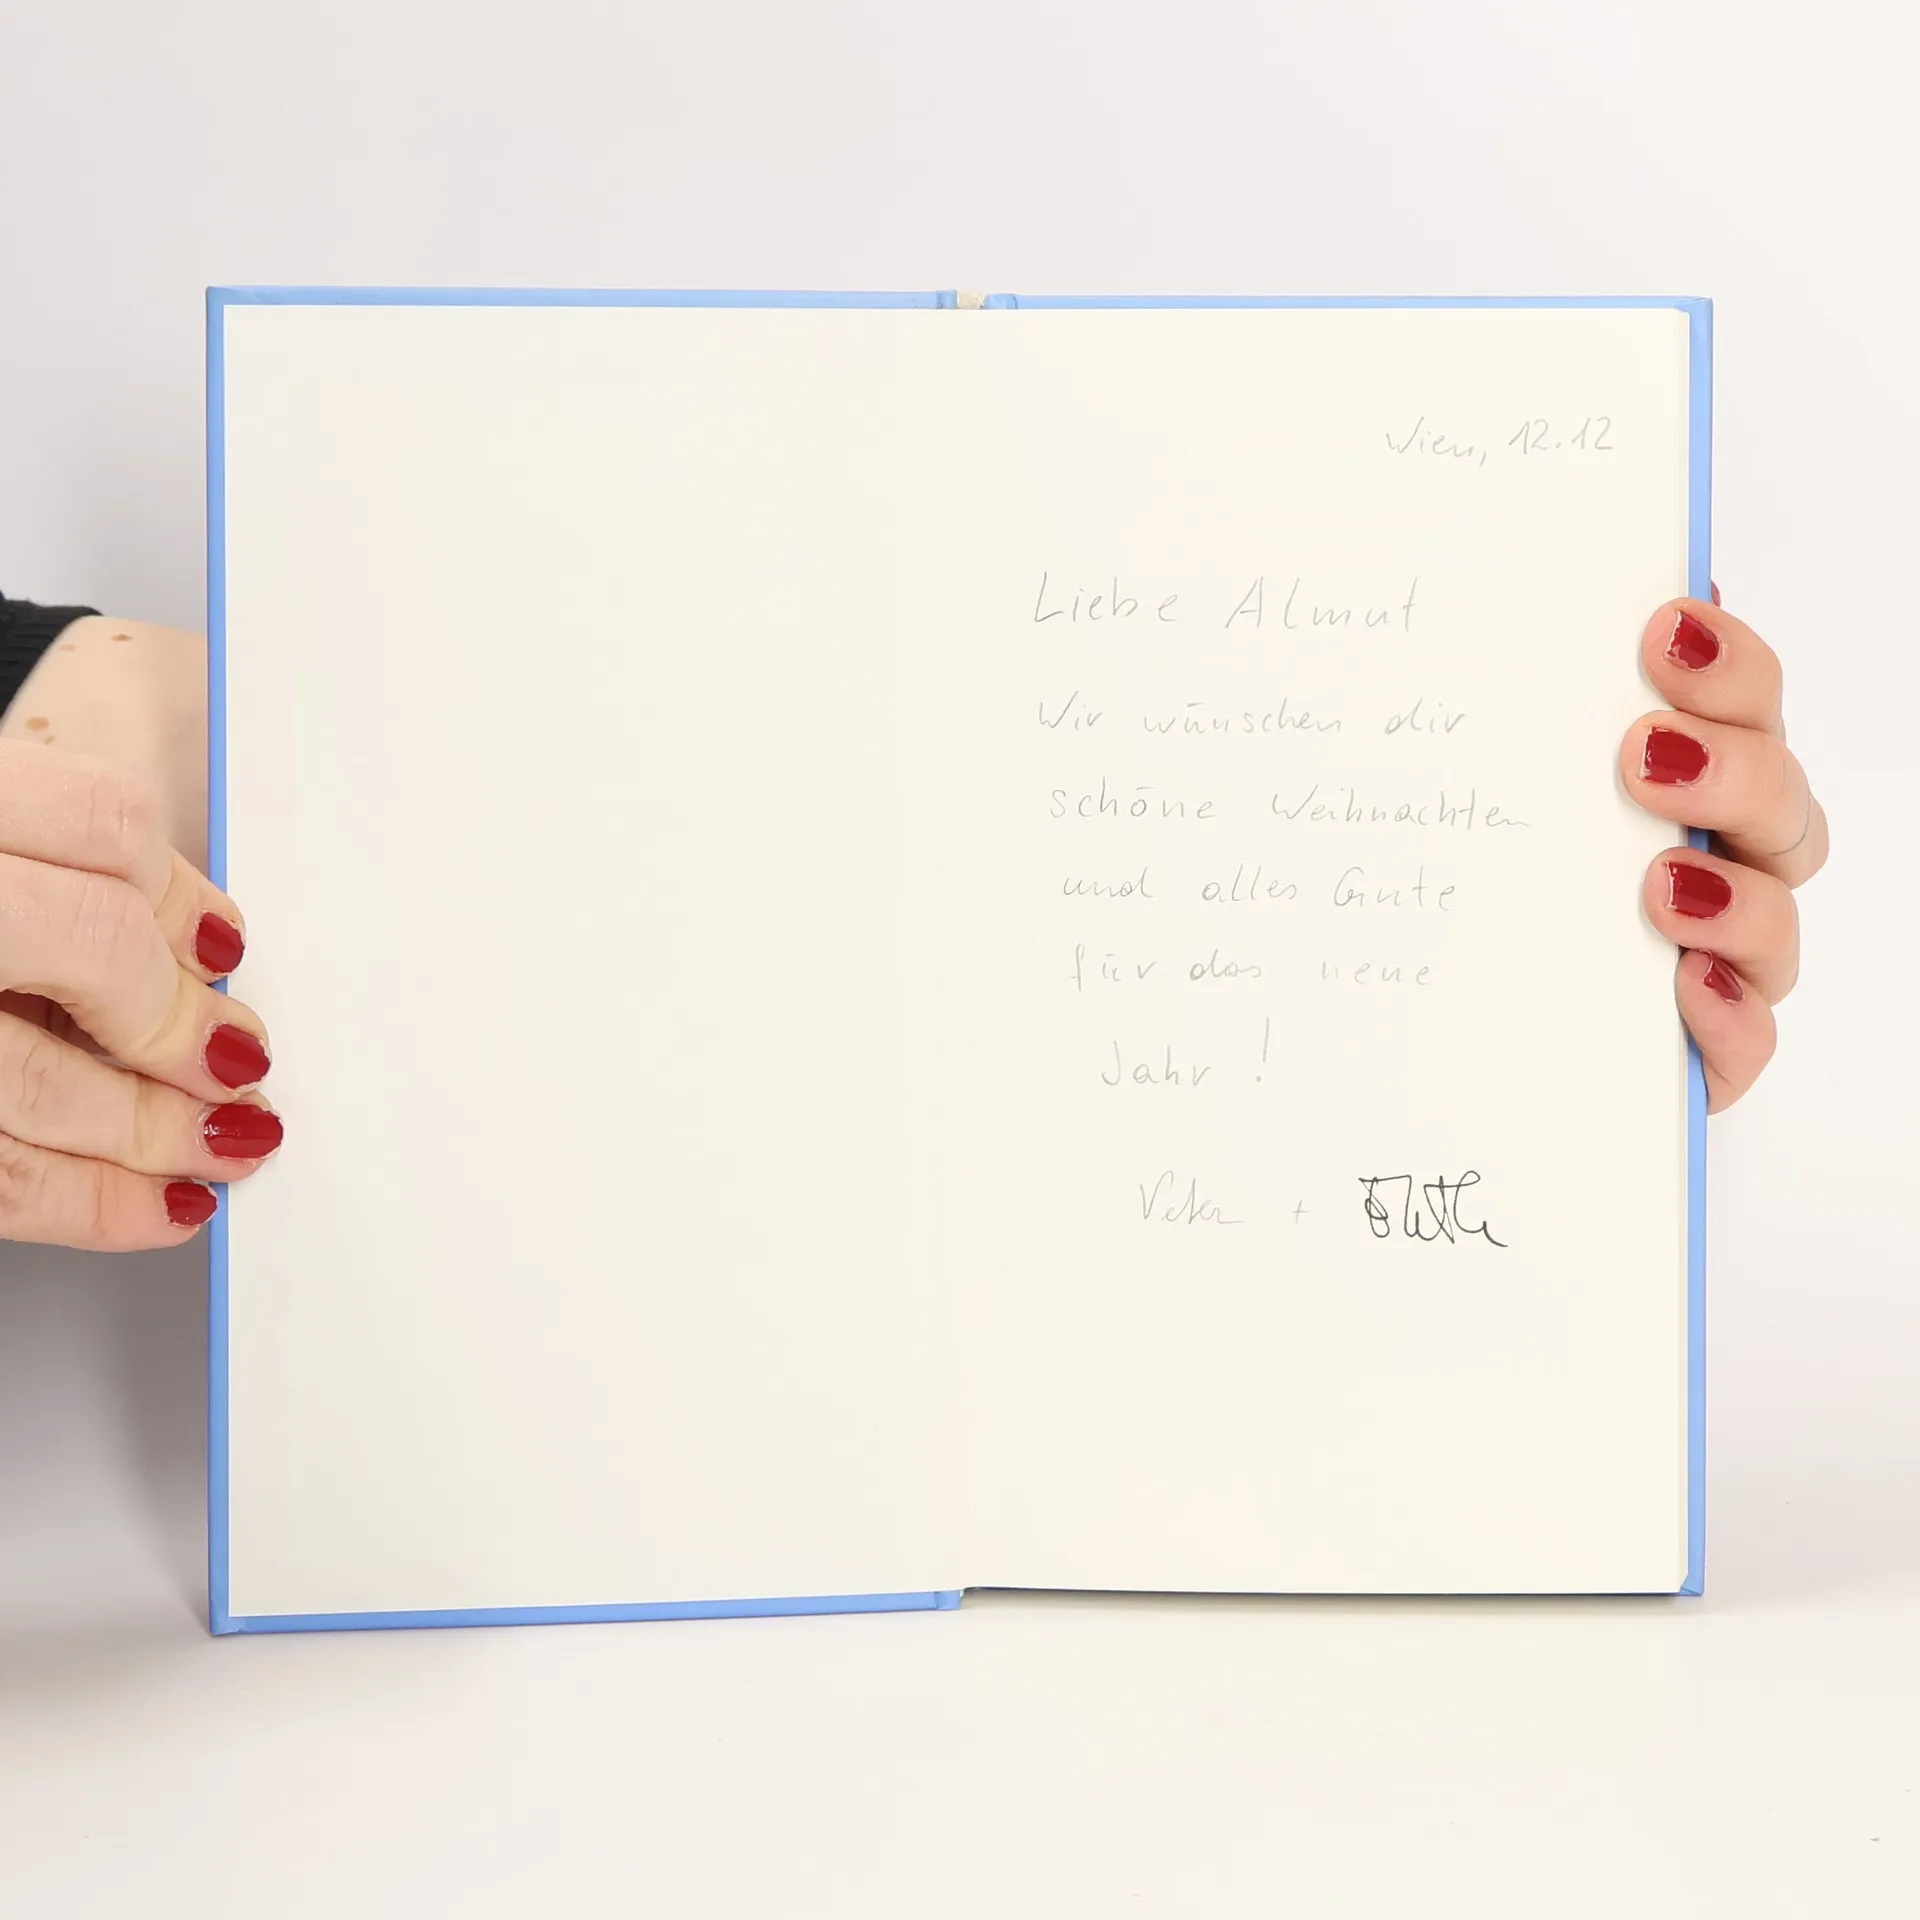 Wien, 12.12
Liebe Almut
Wir wünschen dir
schöne Weihnachten
und alles Gute
für das neue
Jahr !
+